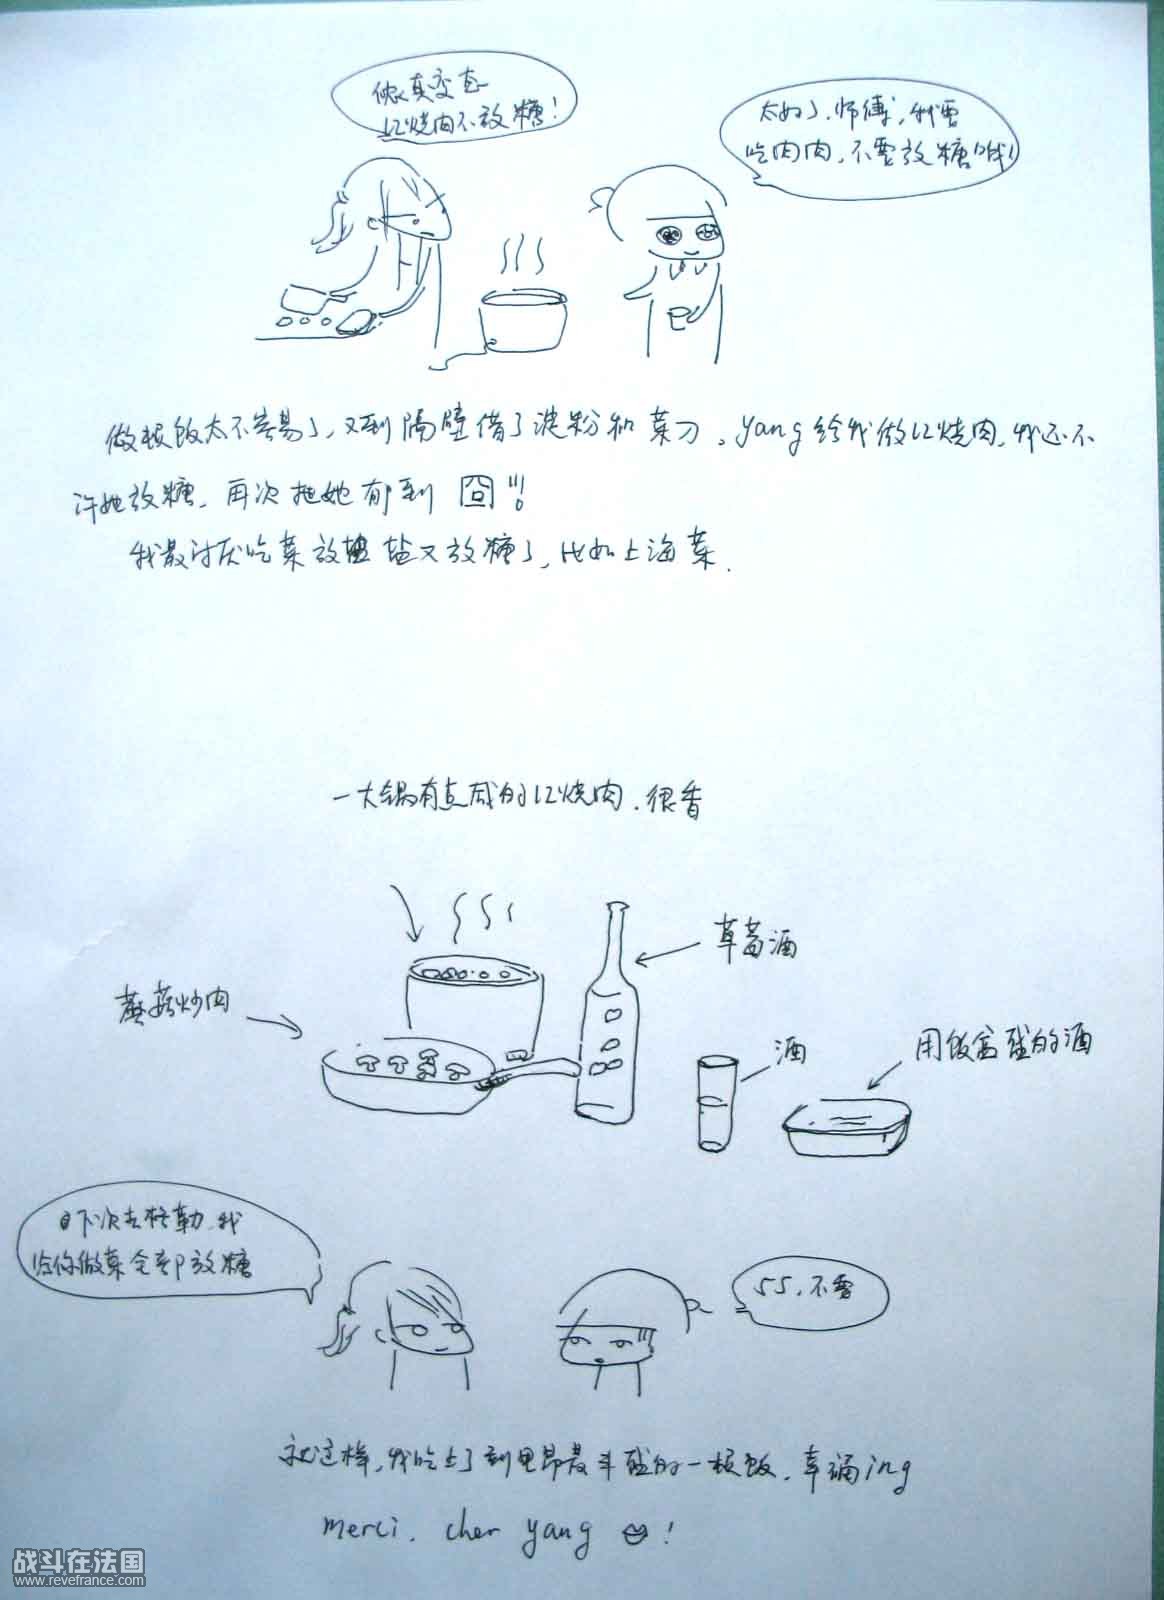 侬真变态
红烧肉不放糖!
太好了,师傅,我要
吃肉肉,不要放糖哦!
做顿饭太不容易了,又到隔壁借了淀粉和菜刀。yang给我做红烧肉,我还不
许她放糖,再次把她郁到 囧!!!
我最讨厌吃菜放盐又放糖了,比如上海菜.
一大锅有点咸的红烧肉,很香
草莓酒
蘑菇炒肉
酒
用饭盒盛的酒
下次去格勒,我
给你做菜全部放糖
55,不要
就这样,我吃上了到里昂最丰盛的一顿饭,幸福ing
merci, cher yang !
战斗在法国
www.revefrance.com